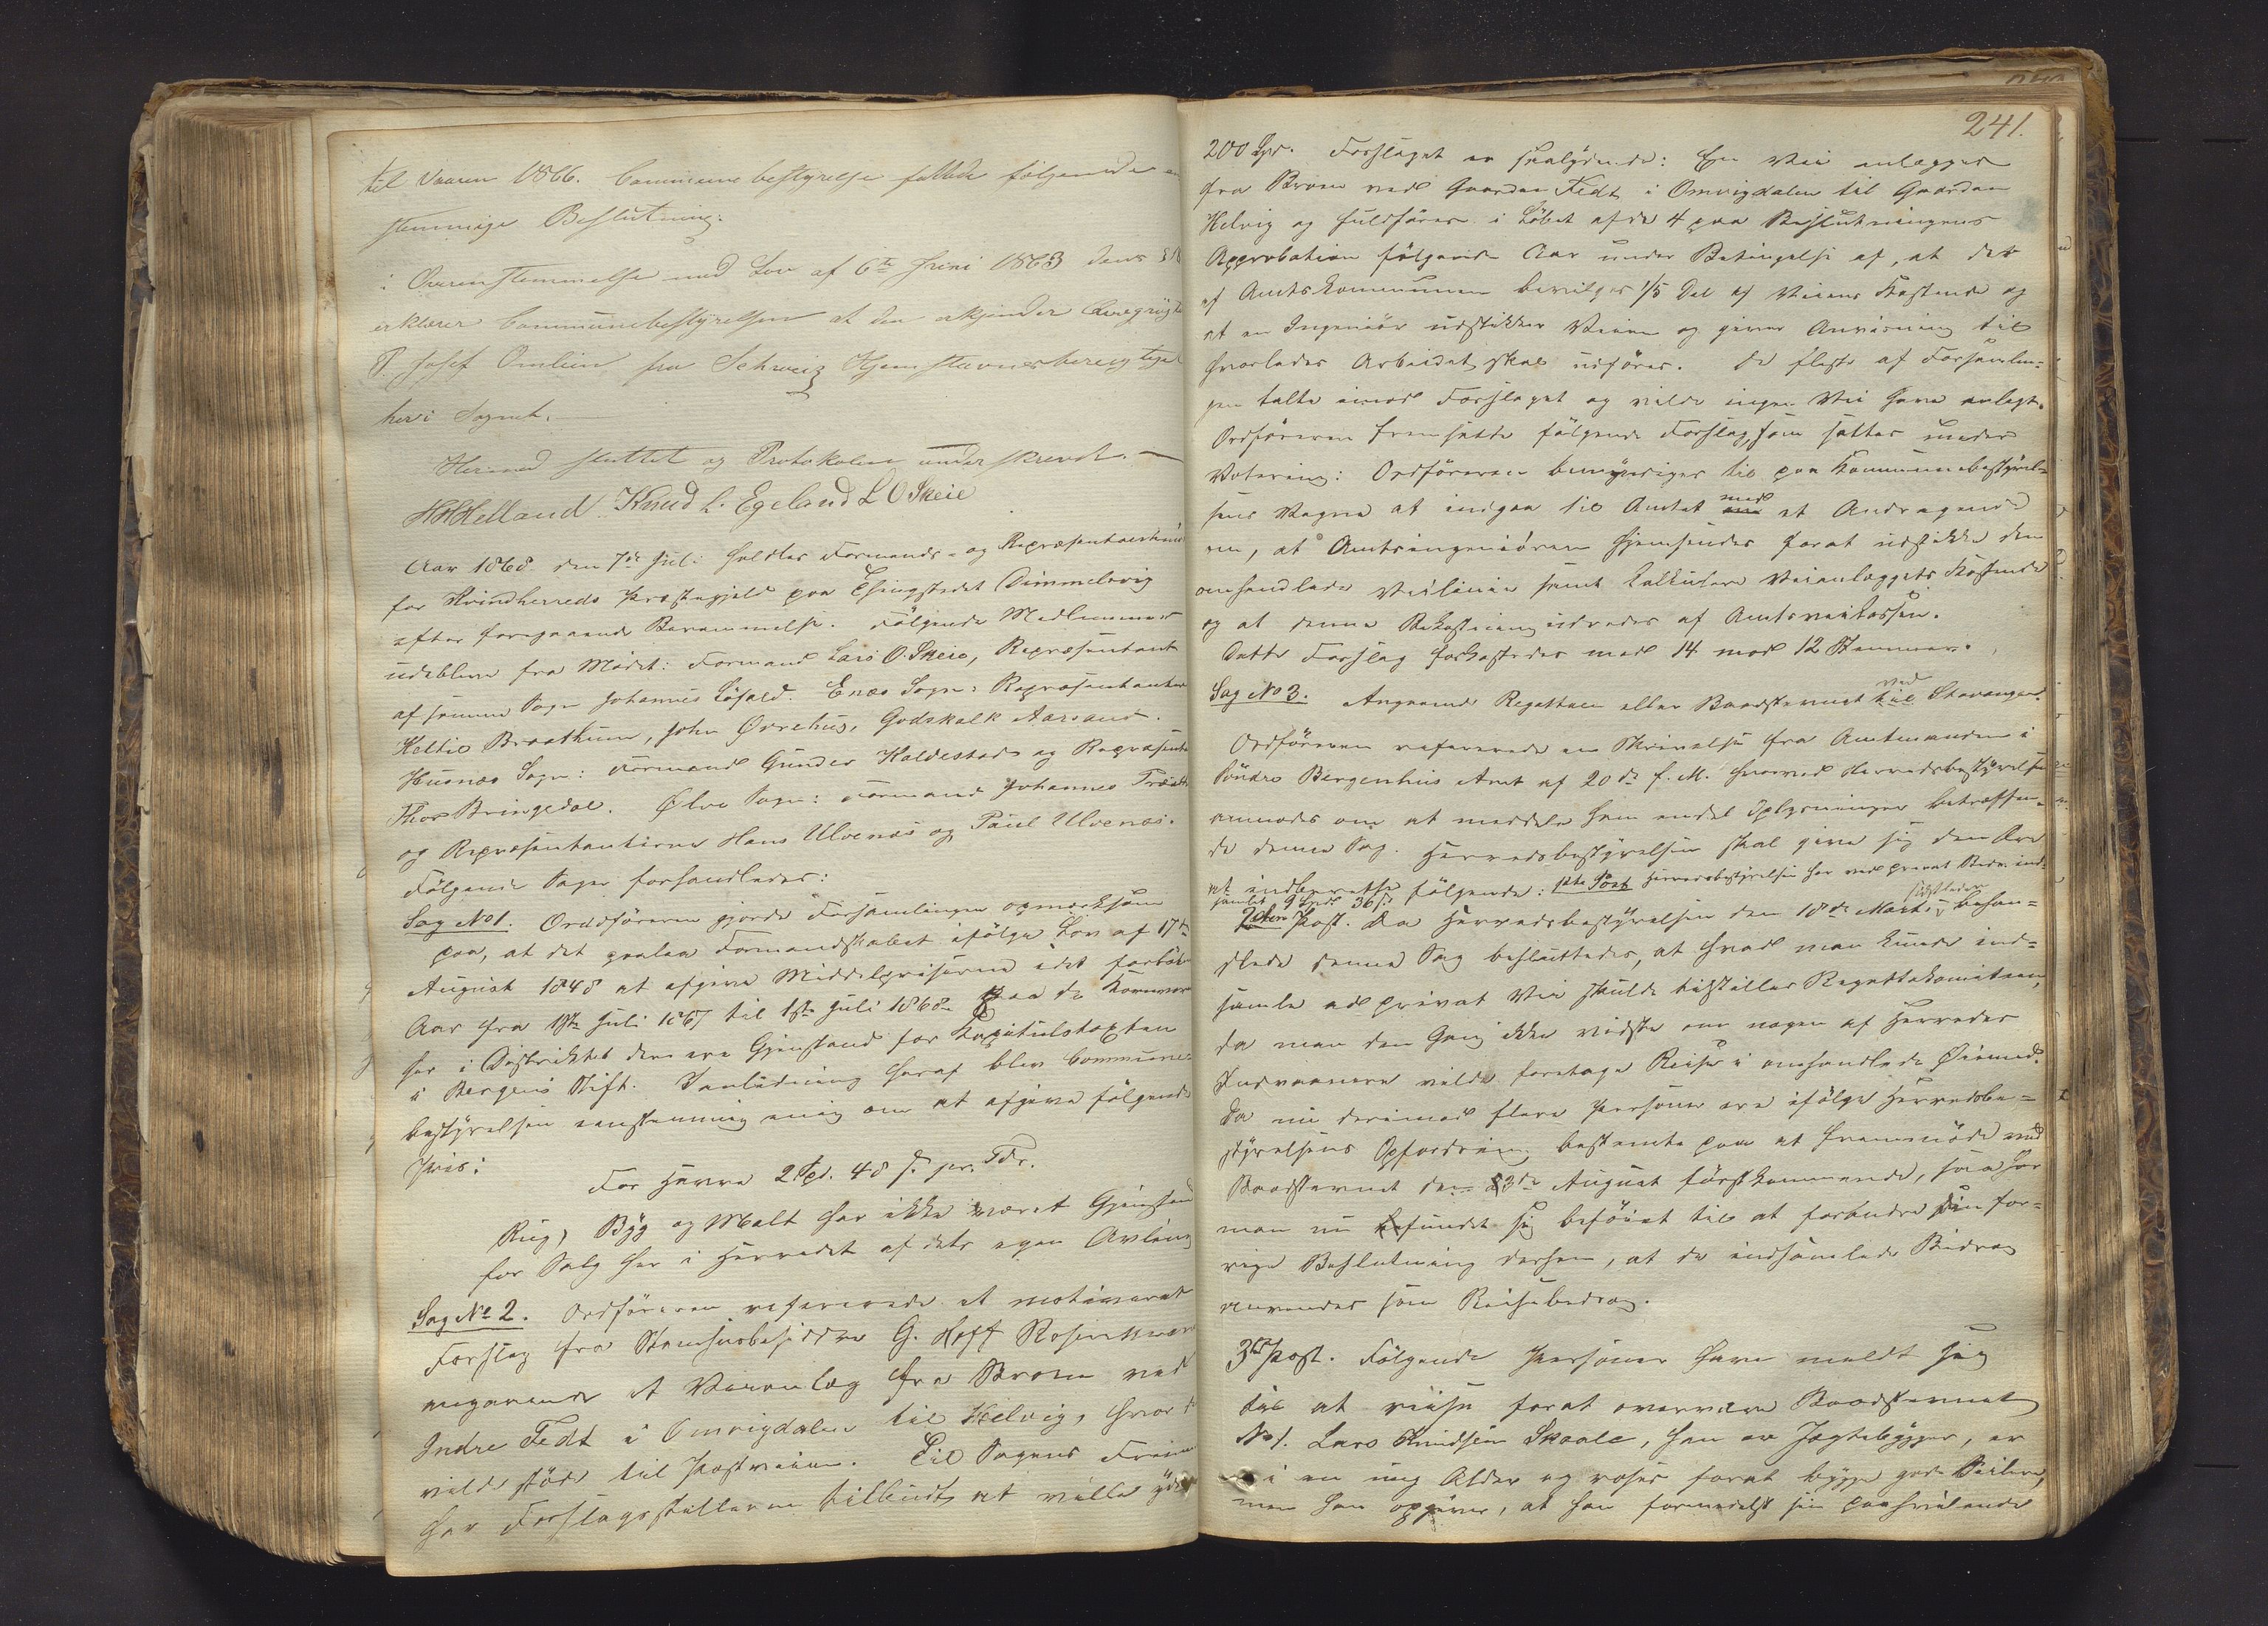 til Vaaren 1866. Communebestyrelse fattede følgende en
stemmige Beslutning:
i Overensstemmelse med Lov af 6te Juni 1863 dens §
erklærer Communebestyrelsen at den erkjender
P. Josef Omlin fra Schweiz Hjemstavnsberettiget
her i Sognet.
Hermed sluttet og Protokolen underskrevet. —
HHHelland Knud L. Egeland L O Skeie
Aar 1868 den 7de Juli holdtes Formands- og Repræsentantmøde
for Kvindherreds Præstegjeld paa Thingstedet Dimmelsvig
efter foregaaende Berammelse. Følgende Medlemmer
udebleve fra Mødet: Formand Lars O. Skeie, Repræsentant
af samme Sogn Johannes Løfald. Enæs Sogn: Repræsentanter
Keltil Braathun, John Øvrehus, Godskalk Aarsand.
Husnæs Sogn: Formand Gunder Haldestad og Repræsent
Thor Bringedal. Ølve Sogn: Formand Johannes Træ
og Repræsentanterne Hans Ulvenæs og Paul Ulvenæs.
Følgende Sager forhandledes:
Sag No 1. Ordføreren gjorde Forsamlingen opmærksom
paa, at det paalaa Formandskabet ifølge Lov af 17de
August 1848 at afgive Middelpriserne i det forløbne
Aar fra 1ste Juli 1867 til 1ste Juli 1868 paa de Kornvarer
her i Distriktet der ere Gjenstand for Kapitelstaxten
i Bergens Stift. I Anledning heraf blev Commune-
bestyrelsen eenstemmig enig om at afgive følgende
Pris:
For Havre 2 Spd. 48 s. pr. Tdr.
Rug, Byg og Malt har ikke været Gjenstand
for Salg her i Herredet af dets egen Avling
Sag No 2. Ordføreren refererede et motiveret
Forslag fra Stamhusbesidder G. Hoff Rosenkrone
angaaende et Veianlæg fra Broen ved
Indre Fedt i Omvigdalen til Helvig, hvor
vilde støde til Postveien. Til Sagens Fremme
har Forslagsstilleren tilbudt at ville yde
241.
200 Spd. Forslaget er saalydende: En Vei anlægges
fra Broen ved Gaarden Fedt i Omvigdalen til Gaarden
Helvig og fuldføres i Løbet af de 4 paa Beslutningens
Approbation følgende Aar under Betingelse af, at der
af Amtskommunen bevilges 1/5 Del af Veiens Kostende og
at en Ingeniør udstikker Veien og giver Anvisning til
hvorledes Arbeidet skal udføres. De fleste af Forsamlin-
gen talte imod Forslaget og vilde ingen Vei have anlagt.
Ordføreren fremsatte følgende Forslag, som sattes under
Votering: Ordføreren bemyndiges til paa Kommunebestyrel-
sens Vegne at indgaa til Amtet med et Andragende
om, at Amtsingeniøren hjemsendes forat udstikke den
omhandlede Veilinie samt kalkulere Veianlæggets Kostende
og at denne Bekostning udredes af Amtsveikassen.
Dette Forslag forkastedes med 14 mod 12 Stemmer.
Sag No 3. Angaaende Regattaen eller Baadstevnet ved Stavanger.
Ordføreren refererede en Skrivelse fra Amtmanden i
Søndre Bergenhus Amt af 20de f. M. hvorved Herredsbestyrelsen
anmodes om at meddele ham endel Oplysninger betræffen-
de denne Sag. Herredsbestyrelsen skal give sig den Ære
at indberette følgende: 1ste Post Herredsbestyrelsen har ved privat Bidr. ind-
samlet 9 Spd. 36 s.
2den Post. Da Herredsbestyrelsen den 18de Marts sidstleden behan-
dlede denne Sag besluttedes, at hvad man kunde ind-
samle ad privat Vei skulde tilstilles Regattakomiteen,
da man den Gang ikke vidste om nogen af Herredets
Indvaanere vilde foretage Reise i omhandlede Øiemed.
Da nu derimod flere Personer ere ifølge Herredsbe-
styrelsens Opfordring bestemte paa at fremmøde ved
Baadstevnet den 3de August førstkommende, saa har
man nu fundet sig beføiet til at forandre sin for-
rige Beslutning derhen, at de indsamlede Bidrag
anvendes som Reisebidrag.
3die Post. Følgende Personer have meldt sig
til at reise forat overvære Baadstevnet
No 1. Lars Knudsen Skaale, han er Jægtebygger, er
i en ung Alder og roses forat bygge gode Seilere,
men han opgiver, at han formedelst sin paahvilende